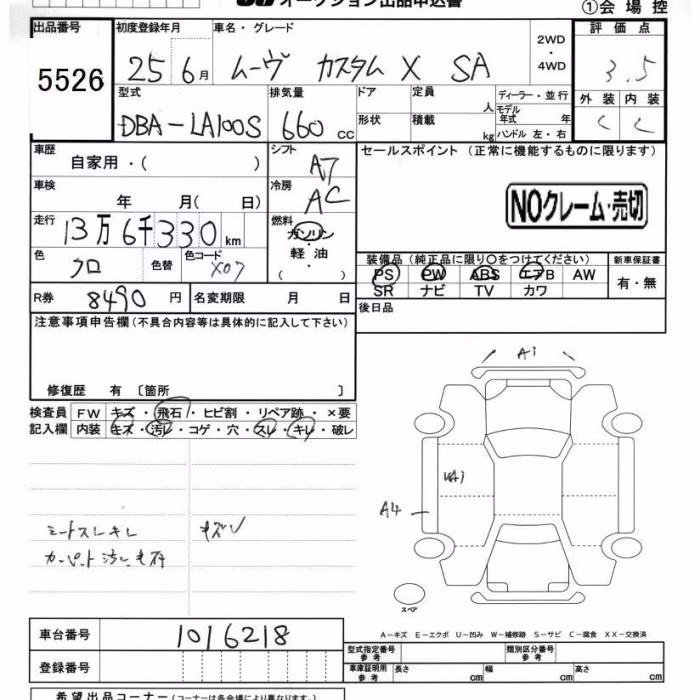 オークション出品申込書
①会場控
出品番号
5526
初度登録年月
25 6月
車名・グレード
ムーヴ カスタム X SA
2WD
・
4WD
評価点
3.5
型式
DBA-LA100S
排気量
660 CC
ドア
形状
定員 人
積載 kg
ディーラー・並行
モデル年式 年
ハンドル 左・右
外装 内装
C C
車歴
自家用・( )
シフト
A7
セールスポイント (正常に機能するものに限ります)
車検
年 月( 日)
冷房
AC
NOクレーム・売切
走行
13万6千330km
燃料
ガソリン
軽油
( )
色
クロ
色替
色コード
X07
装備品(純正品に限り○をつけてください)
PS PW ABS エアB AW
SR ナビ TV カワ
新車保証書
有・無
R券
8490 円
名変期限 月 日
後日品
注意事項申告欄(不具合内容等は具体的に記入して下さい)
修復歴 有 〔箇所 〕
検査員
記入欄
FW キズ・飛石・ヒビ割・リペア跡・×要
内装 キズ・汚レ・コゲ・穴・スレ・キレ・破レ
A1
UA1
A4
スペア
シートスレキレ
キズV
A-キズ E-エクボ U-凹み W-補修跡 S-サビ C-腐食 XX-交換済
車台番号
1016218
登録番号
型式指定番号
参考
類別区分番号
参考
車庫証明用
参考
長さ cm
幅 cm
高さ cm
希望出品コーナー(コーナーは各会場により異なります。)